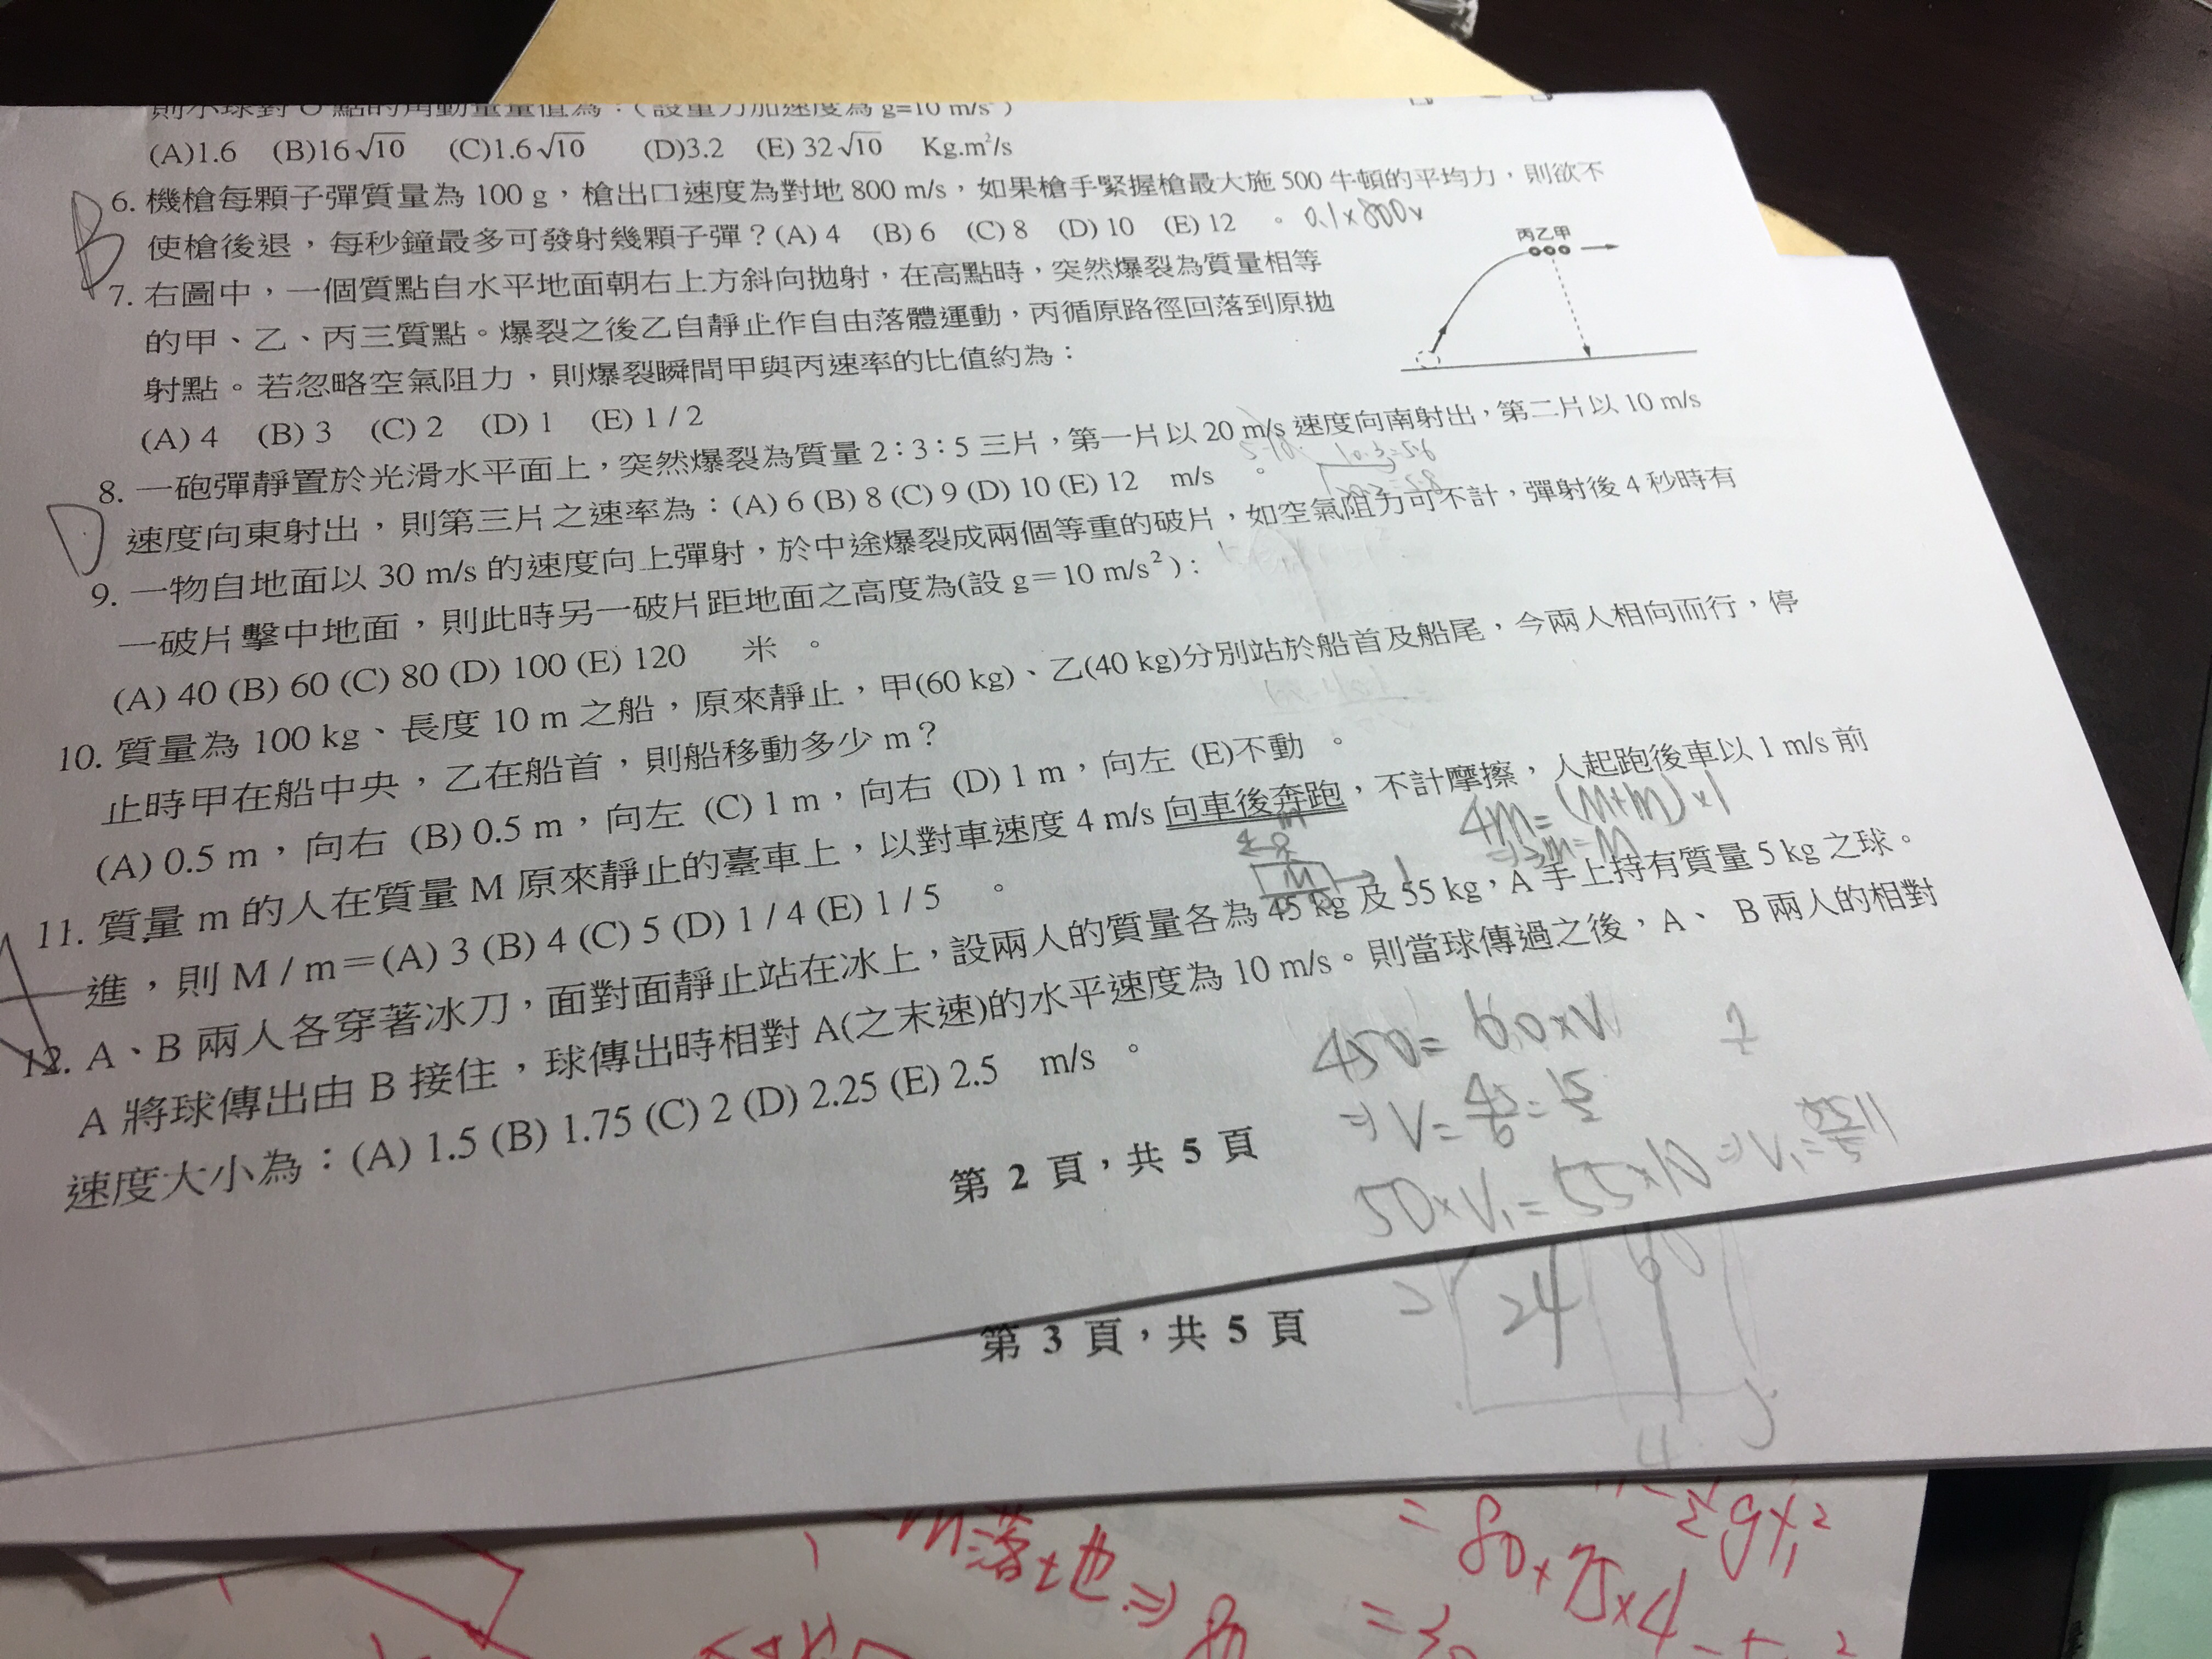 則小球對O點的角動量量值為：(設重力加速度為 g=10 m/s²)
(A)1.6 (B)16√10 (C)1.6√10 (D)3.2 (E) 32√10 Kg.m²/s
B
6. 機槍每顆子彈質量為 100 g，槍出口速度為對地 800 m/s，如果槍手緊握槍最大施 500 牛頓的平均力，則欲不
使槍後退，每秒鐘最多可發射幾顆子彈？(A) 4 (B) 6 (C) 8 (D) 10 (E) 12 。 0.1×800×
7. 右圖中，一個質點自水平地面朝右上方斜向拋射，在高點時，突然爆裂為質量相等
的甲、乙、丙三質點。爆裂之後乙自靜止作自由落體運動，丙循原路徑回落到原拋
射點。若忽略空氣阻力，則爆裂瞬間甲與丙速率的比值約為：
(A) 4 (B) 3 (C) 2 (D) 1 (E) 1 / 2
丙乙甲
D
8. 一砲彈靜置於光滑水平面上，突然爆裂為質量 2：3：5 三片，第一片以 20 m/s 速度向南射出，第二片以 10 m/s
速度向東射出，則第三片之速率為：(A) 6 (B) 8 (C) 9 (D) 10 (E) 12 m/s 。
9. 一物自地面以 30 m/s 的速度向上彈射，於中途爆裂成兩個等重的破片，如空氣阻力可不計，彈射後 4 秒時有
一破片擊中地面，則此時另一破片距地面之高度為(設 g＝10 m/s²)：
(A) 40 (B) 60 (C) 80 (D) 100 (E) 120 米 。
10. 質量為 100 kg、長度 10 m 之船，原來靜止，甲(60 kg)、乙(40 kg)分別站於船首及船尾，今兩人相向而行，停
止時甲在船中央，乙在船首，則船移動多少 m？
(A) 0.5 m，向右 (B) 0.5 m，向左 (C) 1 m，向右 (D) 1 m，向左 (E)不動 。
11. 質量 m 的人在質量 M 原來靜止的臺車上，以對車速度 4 m/s 向車後奔跑，不計摩擦，人起跑後車以 1 m/s 前
進，則 M / m＝(A) 3 (B) 4 (C) 5 (D) 1 / 4 (E) 1 / 5 。
4m=(M+m)×1
⇒3m=M
m
M
1
12. A、B 兩人各穿著冰刀，面對面靜止站在冰上，設兩人的質量各為 45 kg 及 55 kg，A 手上持有質量 5 kg 之球。
A 將球傳出由 B 接住，球傳出時相對 A(之末速)的水平速度為 10 m/s。則當球傳過之後，A、 B 兩人的相對
速度大小為：(A) 1.5 (B) 1.75 (C) 2 (D) 2.25 (E) 2.5 m/s 。
450=60×V
⇒V=45/6=15/2
50×V₁=55×10⇒V₁=
11
第 2 頁，共 5 頁
24
60
4
第 3 頁，共 5 頁
m落地⇒
=80×75×4-